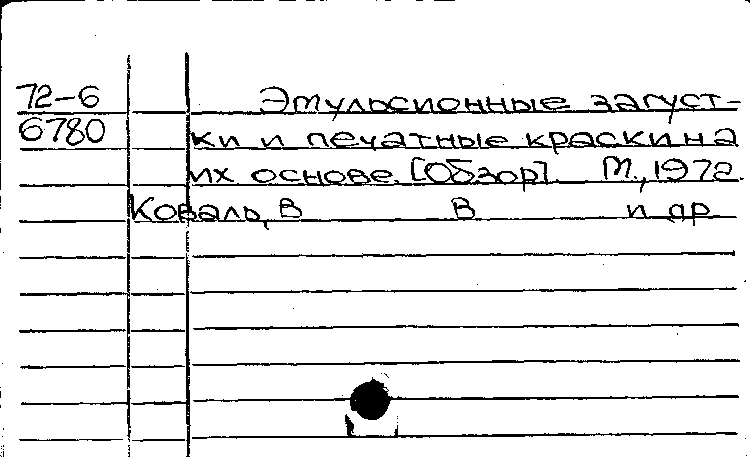 72-6 Эмульсионные загуст-
6780 ки и печатные краски на
их основе. [Обзор]. М., 1972.
Коваль, В В и др